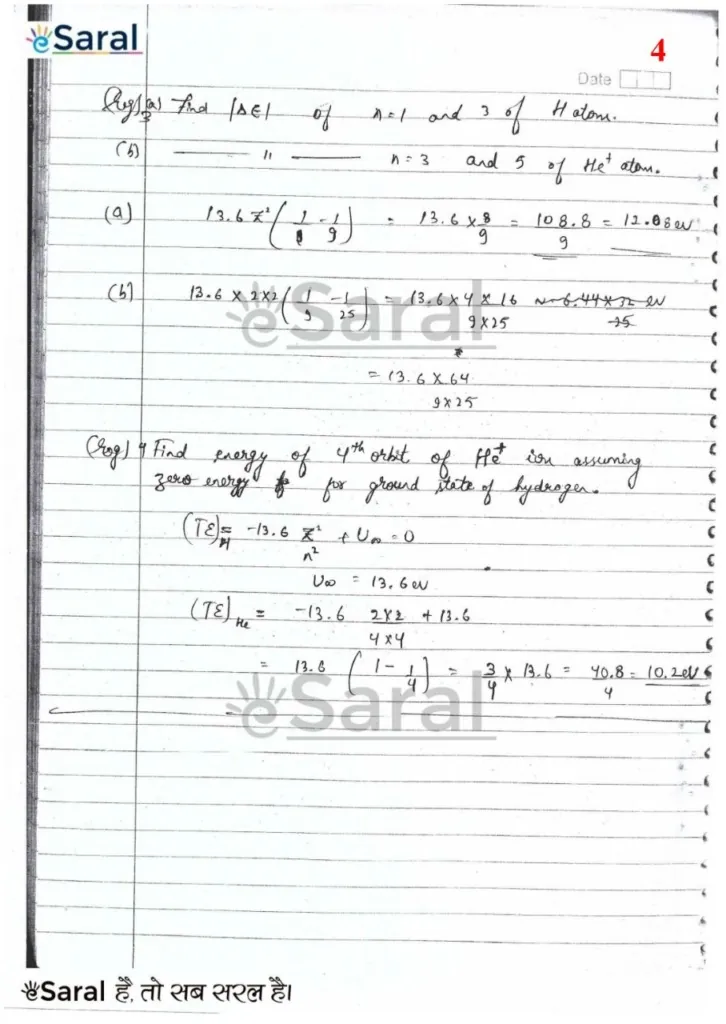 eSaral
4
Date
(Prog) 3 (a) Find |ΔE| of n=1 and 3 of H atom.
(b) —— " —— n=3 and 5 of He⁺ atom.
(a) 13.6 Z² (1/1 - 1/9) = 13.6 × 8/9 = 108.8/9 = 12.08 eV
(b) 13.6 × 2×2 (1/9 - 1/25) = 13.6×4×16/9×25
= 13.6 × 64/9×25
(Prog) 4 Find energy of 4th orbit of He⁺ ion assuming
zero energy for ground state of hydrogen.
(TE)H = -13.6 Z²/n² + U∞ = 0
U∞ = 13.6 eV
(TE)He = -13.6 2×2/4×4 + 13.6
= 13.6 (1 - 1/4) = 3/4 × 13.6 = 40.8/4 = 10.2 eV
eSaral
eSaral
eSaral है, तो सब सरल है।